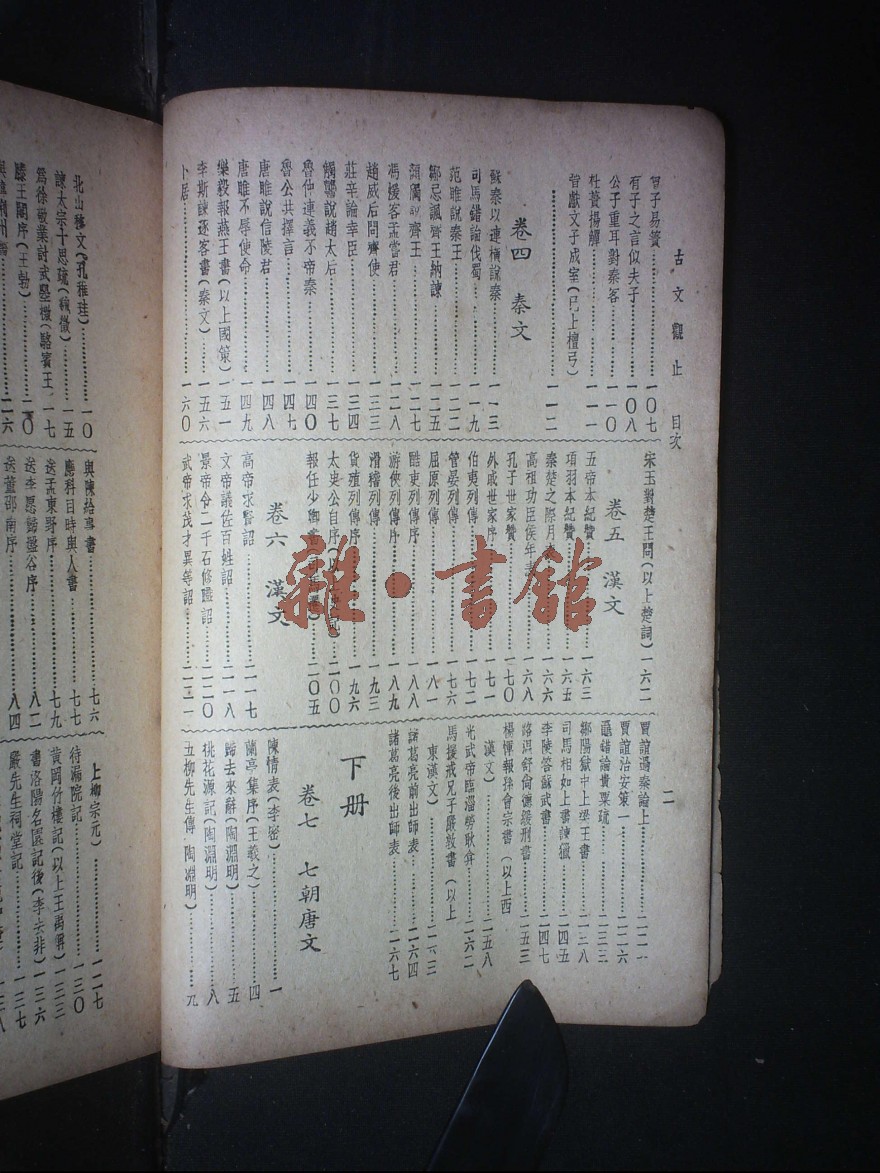 古文觀止 目次
二
曾子易簀 一〇七
有子之言似夫子 一〇八
公子重耳對秦客 一一〇
杜蕡揚觶 一一一
晉獻文子成室(已上檀弓) 一一二
卷四 秦文
蘇秦以連橫說秦 一一三
司馬錯論伐蜀 一一九
范雎說秦王 一二二
鄒忌諷齊王納諫 一二五
顏斶說齊王 一二七
馮煖客孟嘗君 一二八
趙威后問齊使 一三三
莊辛論幸臣 一三四
觸讋說趙太后 一三七
魯仲連義不帝秦 一四〇
魯公共擇言 一四七
唐雎說信陵君 一四八
唐雎不辱使命 一四九
樂毅報燕王書(以上國策) 一五一
李斯諫逐客書(秦文) 一五六
卜居 一六〇
宋玉對楚王問(以上楚詞) 一六二
卷五 漢文
五帝本紀贊 一六三
項羽本紀贊 一六五
秦楚之際月表 一六六
高祖功臣侯年表 一六八
孔子世家贊 一七〇
外戚世家序 一七一
伯夷列傳 一七二
管晏列傳 一七六
屈原列傳 一八一
酷吏列傳序 一八八
游俠列傳序 一八九
滑稽列傳 一九三
貨殖列傳序 一九六
太史公自序 二〇〇
報任少卿書 二〇五
卷六 漢文
高帝求賢詔 二一七
文帝議佐百姓詔 二一八
景帝令二千石修職詔 二二〇
武帝求茂才異等詔 二二一
賈誼過秦論上
賈誼治安策一 二二六
鼂錯論貴粟疏 二三三
鄒陽獄中上梁王書 二三八
司馬相如上書諫獵 二四五
李陵答蘇武書 二四七
路溫舒尚德緩刑書 二五三
楊惲報孫會宗書(以上西
漢文) 二五八
光武帝臨淄勞耿弇 二六二
馬援戒兄子嚴敦書(以上
東漢文) 二六三
諸葛亮前出師表 二六四
諸葛亮後出師表 二六七
下册
卷七 七朝唐文
陳情表(李密) 一
蘭亭集序(王羲之) 四
歸去來辭(陶淵明) 五
桃花源記(陶淵明) 八
五柳先生傳(陶淵明) 九
北山移文(孔稚珪) 一〇
諫太宗十思疏(魏徵) 一五
爲徐敬業討武曌檄(駱賓王 一七
滕王閣序(王勃) 二〇
二六
與陳給事書 七六
應科目時與人書 七七
送孟東野序 七九
送李愿歸盤谷序 八二
送董邵南序 八四
上柳宗元) 一二七
待漏院記 一三〇
黃岡竹樓記(以上王禹偁) 一三三
書洛陽名園記後(李去非) 一三六
嚴先生祠堂記 一三七
雜·書館